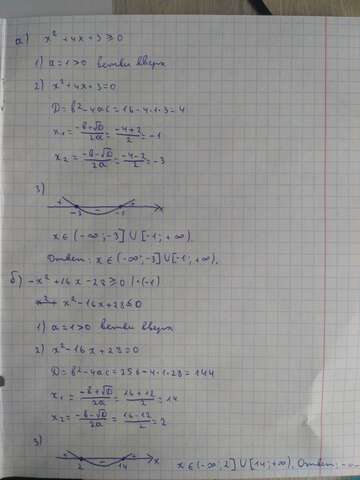 а) x² + 4x + 3 ≥ 0
1) a = 1 > 0 ветви вверх
2) x² + 4x + 3 = 0
D = b² - 4ac = 16 - 4·1·3 = 4
x₁ = (-b+√D)/2a = (-4+2)/2 = -1
x₂ = (-b-√D)/2a = (-4-2)/2 = -3
3)
+ -3 - -1 + x
x ∈ (-∞; -3] ∪ [-1; +∞).
Ответ: x ∈ (-∞; -3] ∪ [-1; +∞).
б) -x² + 16x - 28 ≥ 0 | ·(-1)
x² - 16x + 28 ≤ 0
1) a = 1 > 0 ветви вверх
2) x² - 16x + 28 = 0
D = b² - 4ac = 256 - 4·1·28 = 144
x₁ = (-b+√D)/2a = (16+12)/2 = 14
x₂ = (-b-√D)/2a = (16-12)/2 = 2
3)
+ 2 - 14 + x
x ∈ (-∞; 2] ∪ [14; +∞). Ответ: -..-